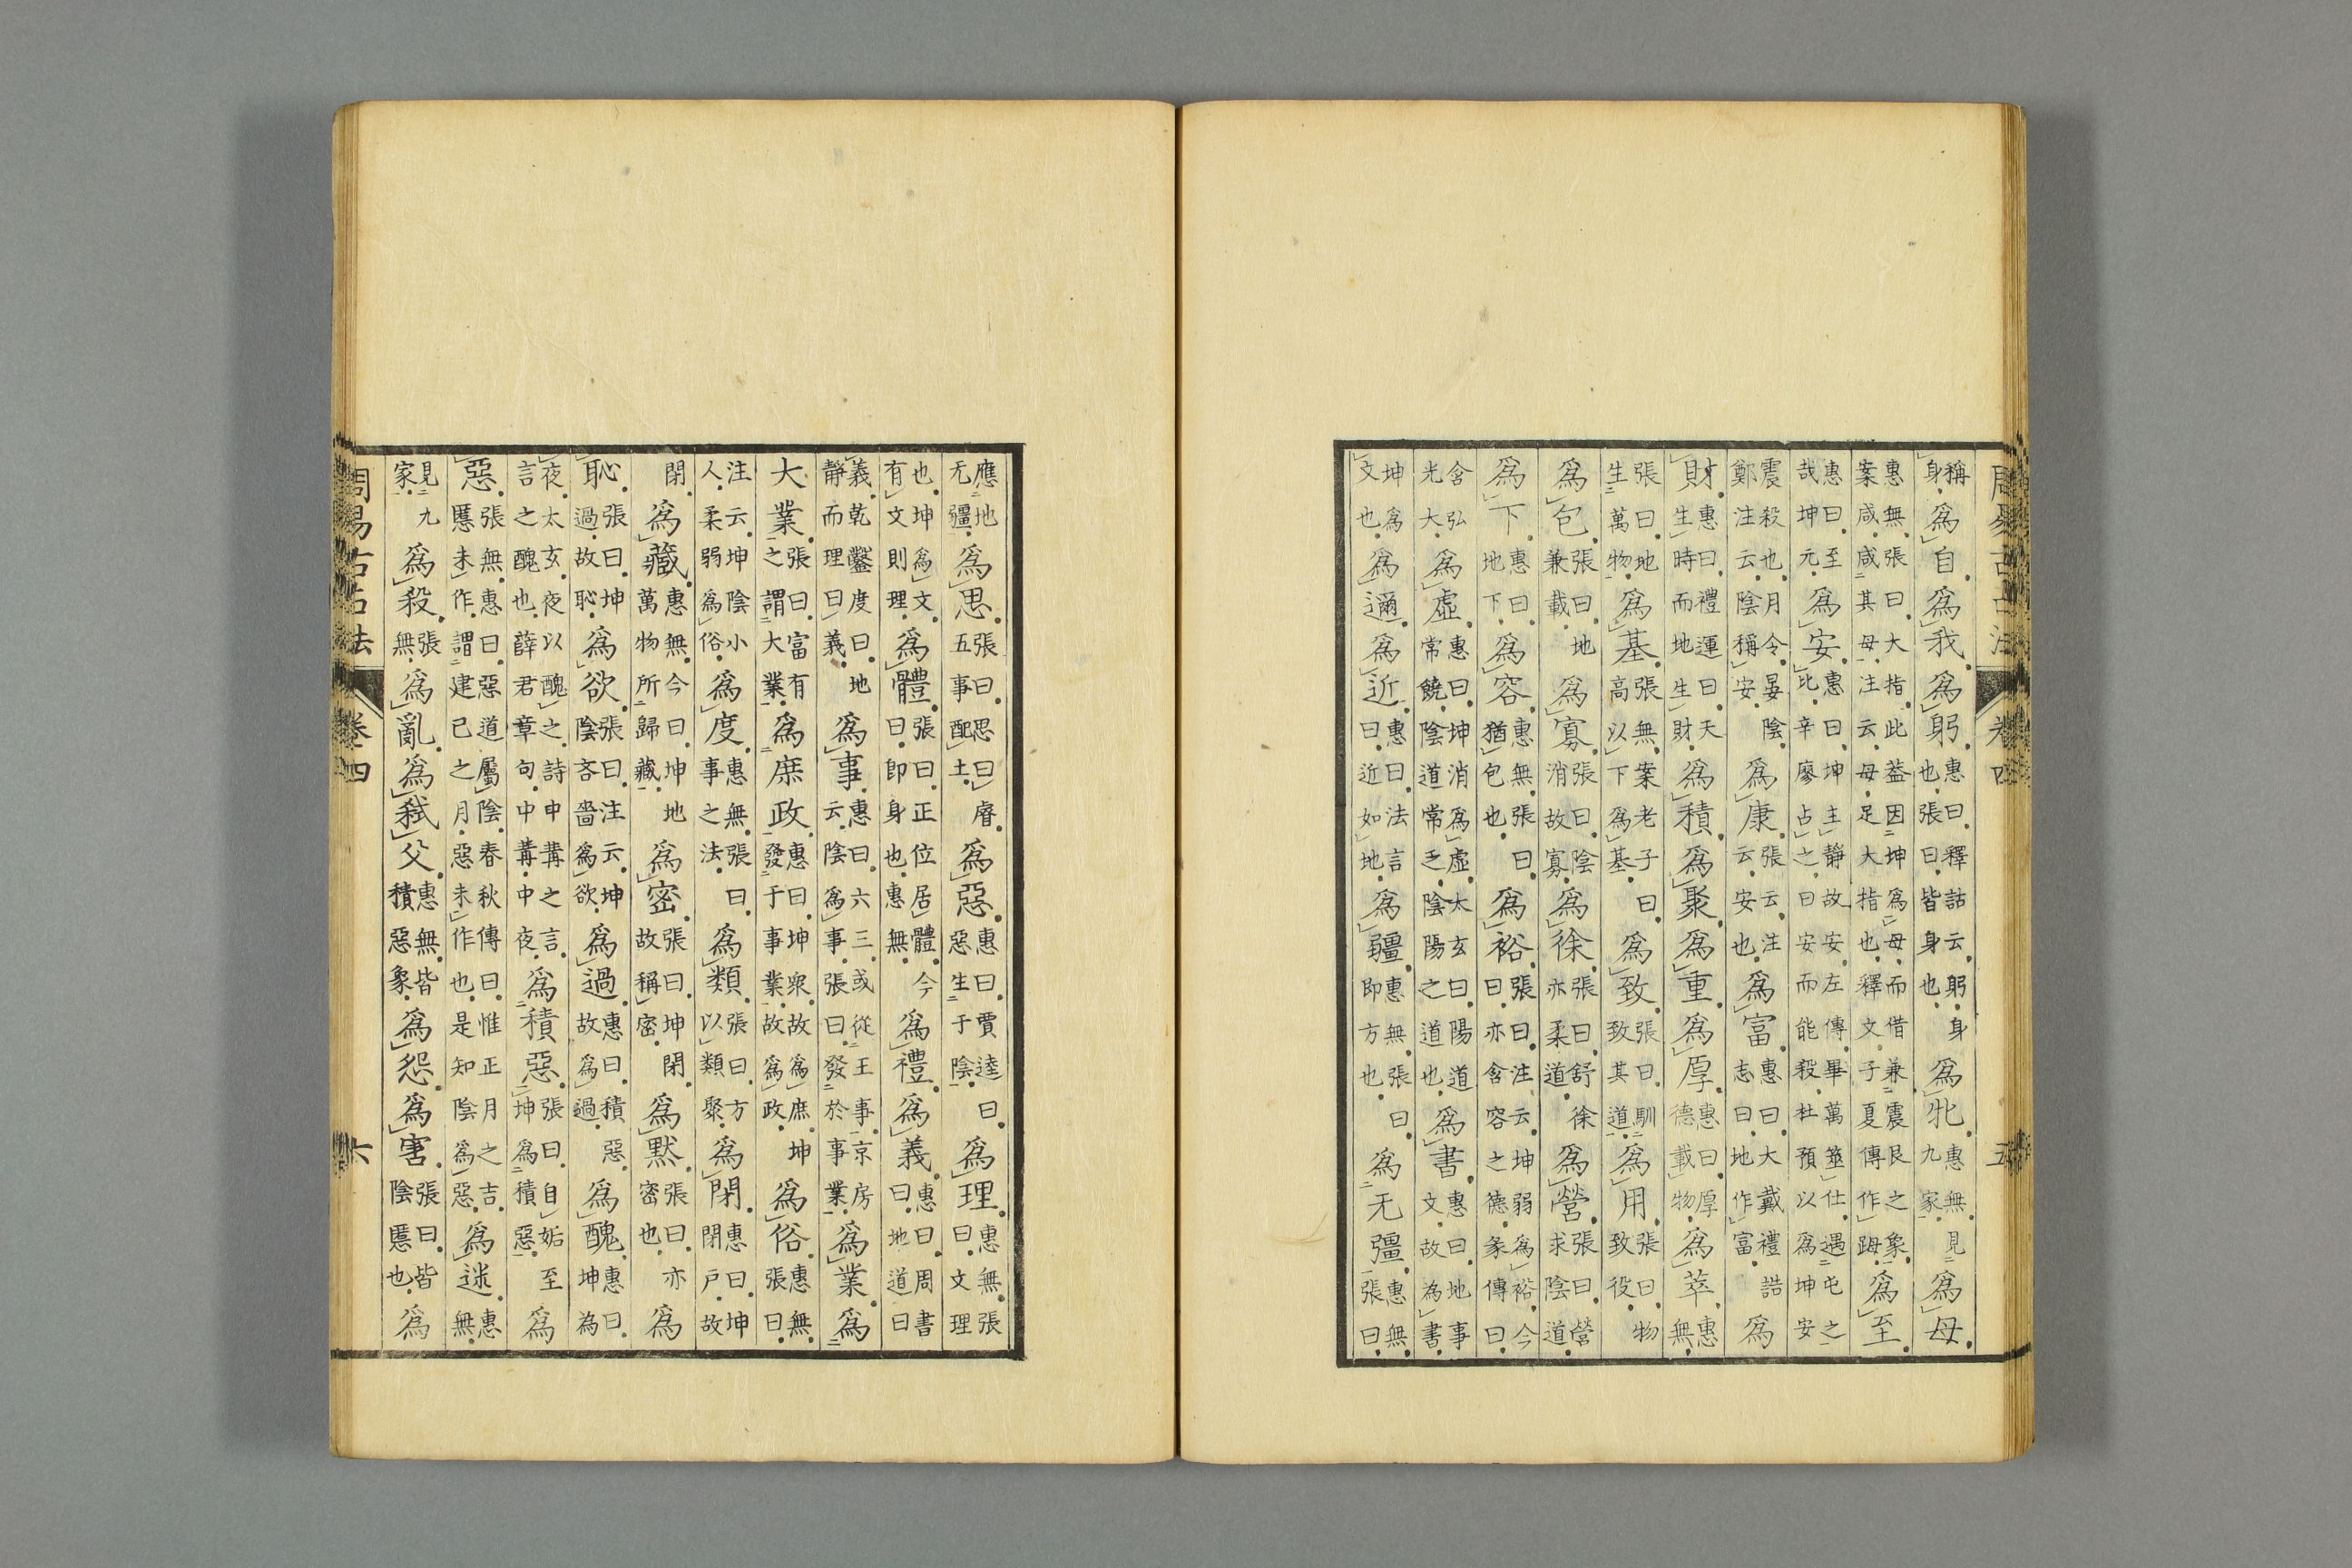 周易古占法 卷四 五
稱身爲自爲我爲躬惠曰釋詁云躬身也張曰皆身也爲牝惠無見九家爲母
惠無張曰大指此蓋因坤爲母而借兼震艮之象案咸咸其母注云母足大指也釋文子夏傳作踇爲至
惠曰至哉坤元爲安惠曰坤主靜故安左傳畢萬筮仕遇屯之比辛廖占之曰安而能殺杜預以爲坤安
震殺也月令晏陰鄭注云陰稱安爲康張云注云安也爲富惠曰大戴禮誥志曰地作富爲
財惠曰禮運曰天生時而地生財爲積爲聚爲重爲厚惠曰厚德載物爲萃惠無
張曰地生萬物爲基張無案老子曰高以下爲基爲致張曰馴致其道爲用張曰物致役
爲包張曰地兼載爲寡張曰陰消故寡爲徐張曰舒徐亦柔道爲營張曰營求陰道
爲下惠曰地下爲容惠無張曰猶包也爲裕張曰注云坤弱爲裕今曰亦含容之德彖傳曰
含弘光大爲虛惠曰坤消爲虛太玄曰陽道常饒陰道常乏陰陽之道也爲書惠曰地事文故為書
坤爲文也爲邇爲近惠曰法言曰近如地爲疆惠無張曰即方也爲无彊惠無張曰
應地无疆爲思張曰思曰睿五事配土爲惡惠曰賈逵曰惡生于陰爲理惠無張曰文理
也坤爲文有文則理爲體張曰正位居體今曰即身也惠無爲禮爲義惠曰周書曰地道曰
義乾鑿度曰地靜而理曰義爲事惠曰六三或從王事京房云陰爲事張曰發於事業爲業爲
大業張曰富有之謂大業爲庶政惠曰坤衆故爲庶坤發于事業故爲政爲俗惠無張曰
注云坤陰小人柔弱爲俗爲度惠無張曰事之法爲類張曰方以類聚爲閉惠曰坤閉戶故
閉爲藏惠無今曰坤地萬物所歸藏爲密張曰坤閉故稱密爲默張曰亦密也爲
恥張曰坤過故恥爲欲張曰注云坤陰吝嗇爲欲爲過惠曰積惡故爲過爲醜惠曰坤為
夜太玄夜以醜之詩中冓之言言之醜也薛君章句中冓中夜爲積惡張曰自姤至坤爲積惡爲
惡張無惠曰惡道屬陰春秋傳曰惟正月之吉慝未作謂建巳之月惡未作也是知陰爲惡爲迷惠無
見九家爲殺張無爲亂爲弒父惠無皆積惡象爲怨爲害張曰皆陰慝也爲
周易古占法 卷四 六